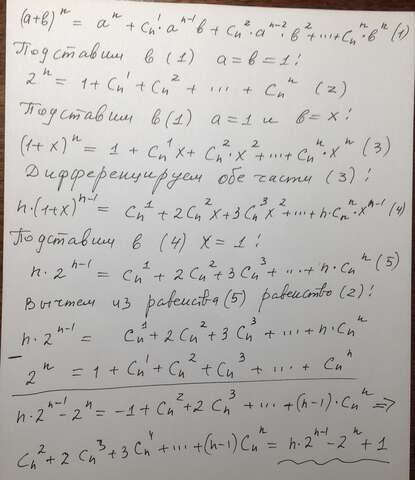 (a+b)ⁿ = aⁿ + Cₙ¹·aⁿ⁻¹b + Cₙ²·aⁿ⁻²·b² + ... + Cₙⁿ·bⁿ (1)
Подставим в (1) a=b=1:
2ⁿ = 1 + Cₙ¹ + Cₙ² + ... + Cₙⁿ (2)
Подставим в (1) a=1 и b=x:
(1+x)ⁿ = 1 + Cₙ¹x + Cₙ²·x² + ... + Cₙⁿ·xⁿ (3)
Дифференцируем обе части (3):
n·(1+x)ⁿ⁻¹ = Cₙ¹ + 2Cₙ²x + 3Cₙ³x² + ... + n·Cₙⁿ·xⁿ⁻¹ (4)
Подставим в (4) x=1:
n·2ⁿ⁻¹ = Cₙ¹ + 2Cₙ² + 3Cₙ³ + ... + n·Cₙⁿ (5)
Вычтем из равенства (5) равенство (2):
n·2ⁿ⁻¹ = Cₙ¹ + 2Cₙ² + 3Cₙ³ + ... + n·Cₙⁿ
−
2ⁿ = 1 + Cₙ¹ + Cₙ² + Cₙ³ + ... + Cₙⁿ
n·2ⁿ⁻¹ - 2ⁿ = -1 + Cₙ² + 2Cₙ³ + ... + (n-1)·Cₙⁿ =>
Cₙ² + 2Cₙ³ + 3Cₙ⁴ + ... + (n-1)Cₙⁿ = n·2ⁿ⁻¹ - 2ⁿ + 1